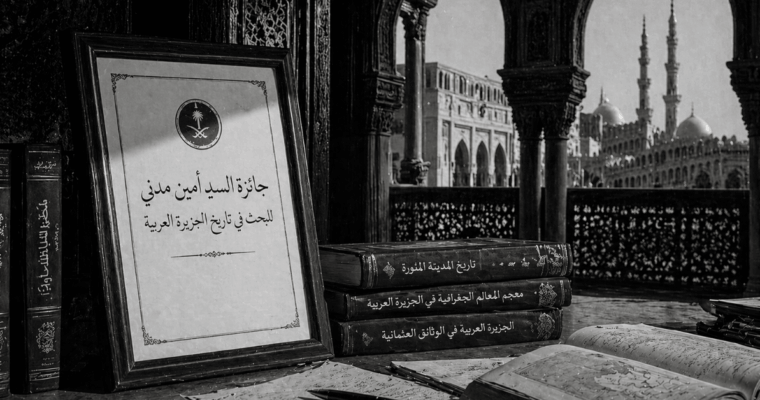 جائزة السيد أمين مدني
للبحث في تاريخ الجزيرة العربية
تاريخ المدينة المنورة
معجم المعالم الجغرافية في الجزيرة العربية
الجزيرة العربية في الوثائق العثمانية